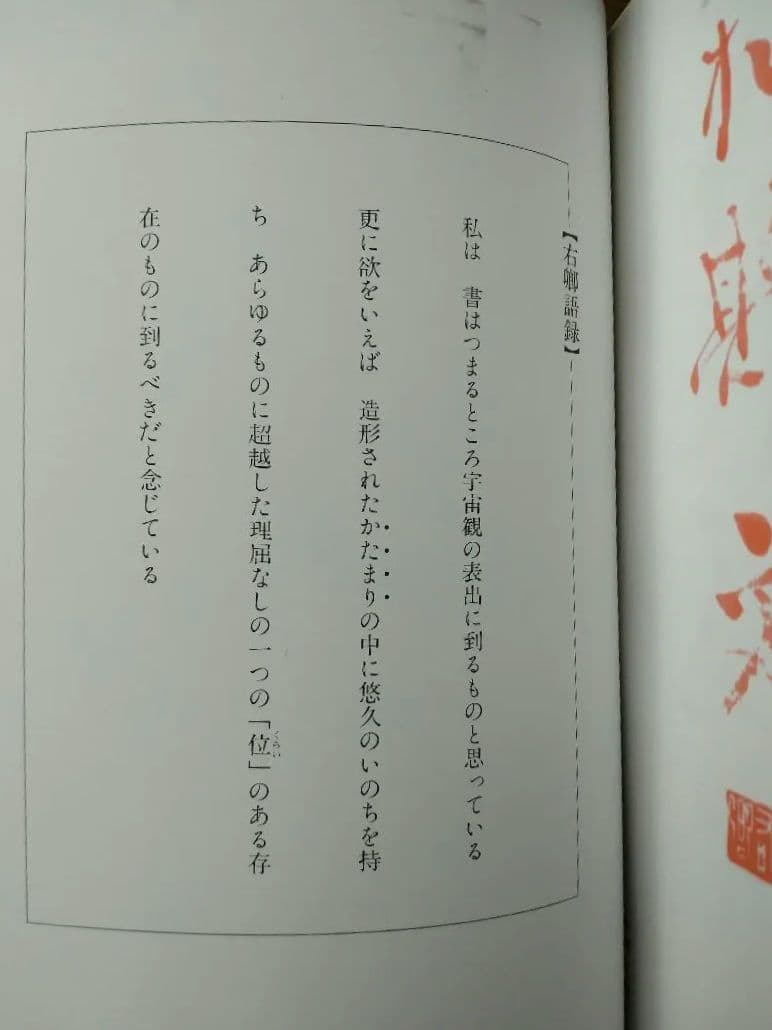 【右卿語録】
私は　書はつまるところ宇宙観の表出に到るものと思っている
更に欲をいえば　造形されたかたまりの中に悠久のいのちを持
ち　あらゆるものに超越した理屈なしの一つの「位」のある存
くらい
在のものに到るべきだと念じている